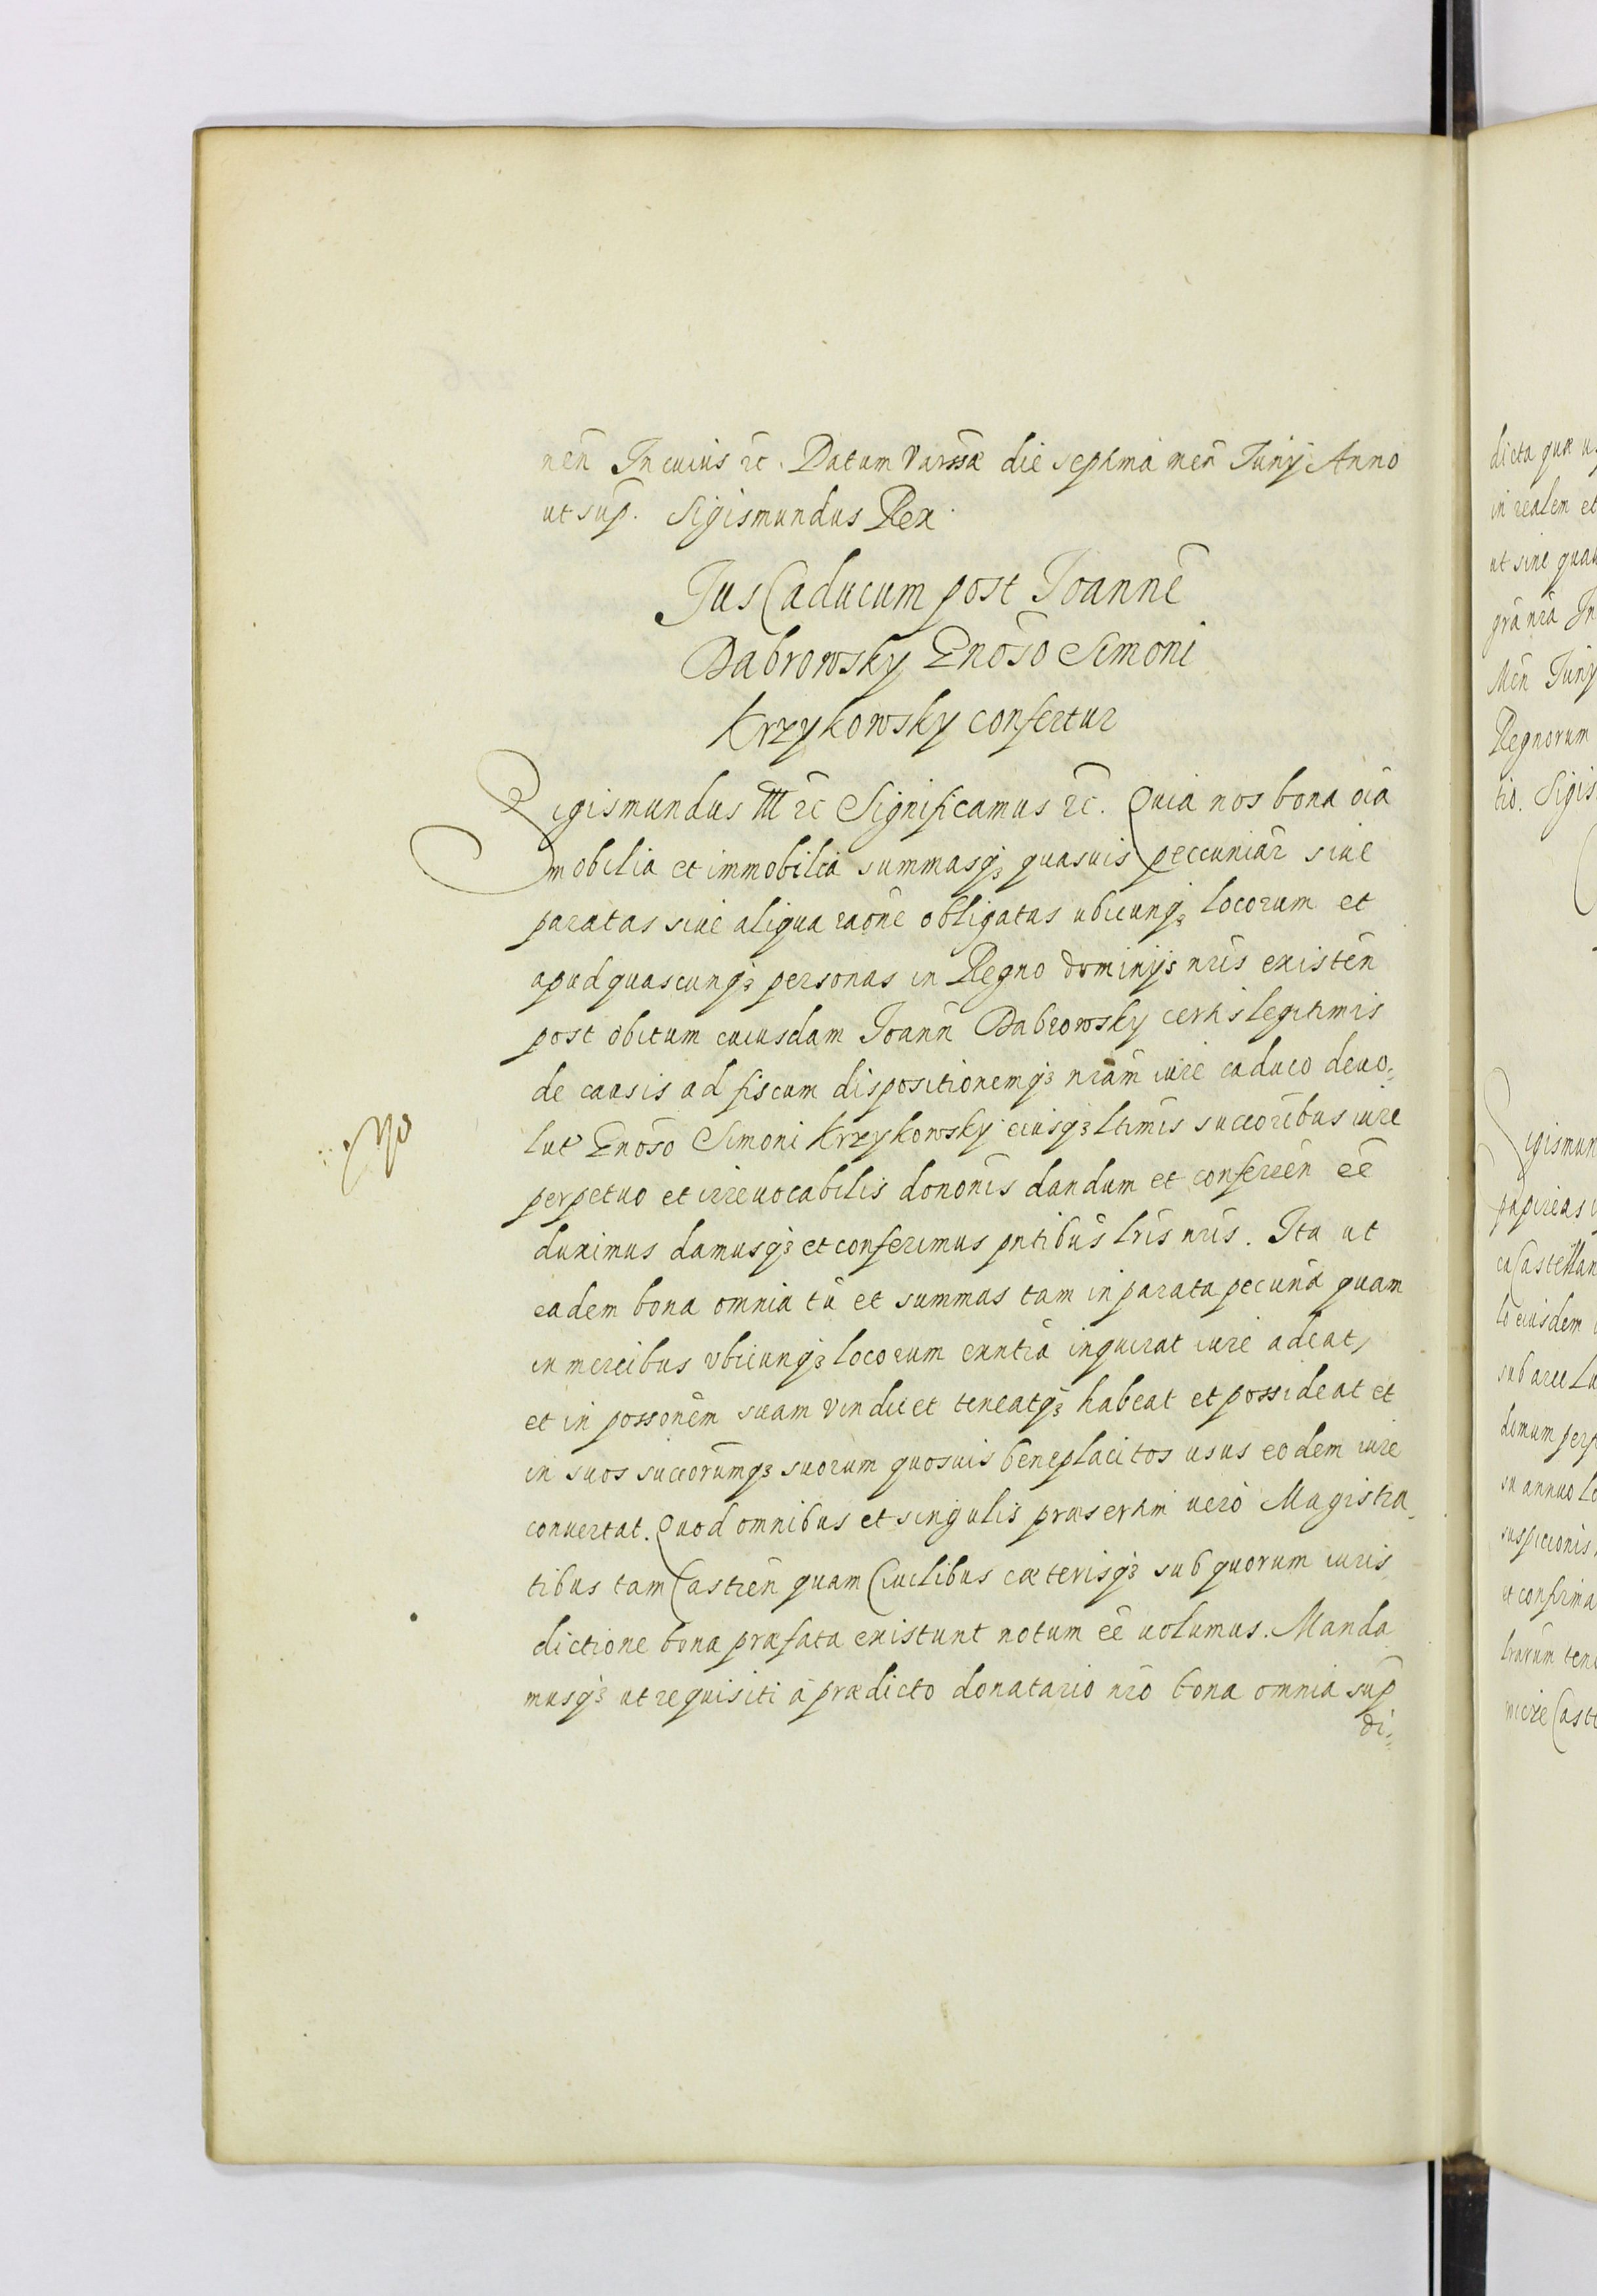 nen̄ In cuius ꝛc. Datum Varssæ die septima men̄ Junÿ Anno
ut sup̄. Sigismundus Rex.
Jus Caducum post Joannē
Dabrowsky Gnōso Simoni
Krzykowsky confertur
Sigismundus III ꝛc Significamus ꝛc. Quia nos bona oīa
mobilia et immobilia summasqꝫ quasuis peccuniar̄ siue
paratas siue aliqua raōne obligatas ubicunqꝫ locorum et
apud quascunqꝫ personas in Regno dominÿs nr̄is existēn
post obitum cuiusdam Joann̄ Dabrowsky certis legitimis
de causis ad fiscum dispositionemqꝫ nr̄am iure caduco deuo-
lut̄ Gnōso Simoni Krzykowsky eiusqꝫ ltīmis succōribus iure
perpetuo et irreuocabilis donōnis dandum et conferēn eē
duximus damusqꝫ et conferimus pn̄tibus lr̄is nr̄is. Ita ut
eadem bona omnia tū et summas tam in parata pecunā quam
in mercibus vbicunqꝫ locorum exn̄tia inquirat iure adeat,
et in possōnem suam vendicet teneatqꝫ habeat et possideat et
in suos succōrumqꝫ suorum quosuis beneplacitos usus eodem iure
conuertat. Quod omnibus et singulis præsertim uerò Magistra-
tibus tam Castrēn quam Ciuilibus cæterisqꝫ sub quorum iuris-
dictione bona præfata existunt notum eē uolumus. Manda
musqꝫ ut requisiti à prædicto donatario nr̄o bona omnia sup̄
di-
dicta quæ
in realem et
ut sine
grā nr̄a
Men̄ Junÿ
Regnorum
Sigis
igismun
papireas
eiusdem
sub arce
domum
in annuo
suspicionis
et confirma
lrārum